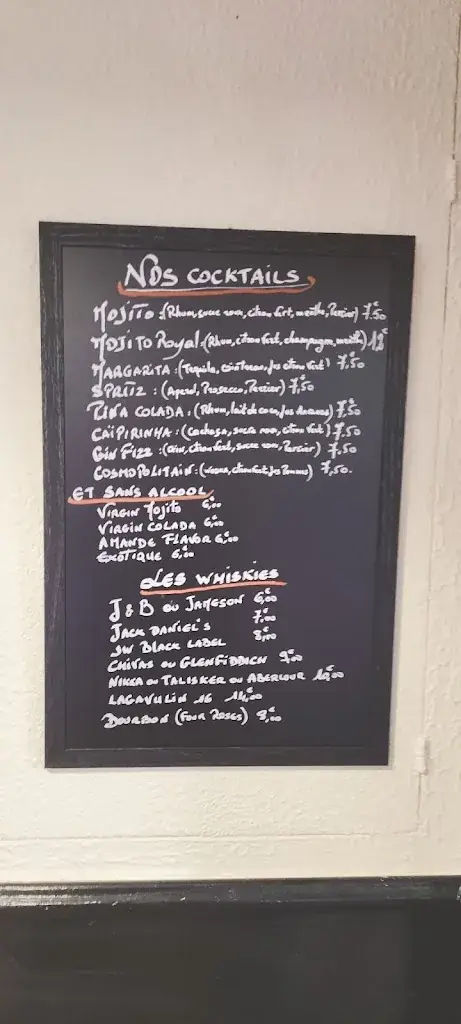 NOS COCKTAILS
MOJITO : (Rhum, sucre roux, citron vert, menthe, Perrier) 7,50€
MOJITO Royal : (Rhum, citron vert, champagne, menthe) 12€
MARGARITA : (Tequila, cointreau, jus citron vert) 7,50€
SPRITZ : (Aperol, Prosecco, Perrier) 7,50€
PIÑA COLADA : (Rhum, lait de coco, Jus Ananas) 7,50€
CAÏPIRINHA : (Cachaça, sucre roux, citron vert) 7,50€
GIN FIZZ : (Gin, citron vert, sucre roux, Perrier) 7,50€
COSMOPOLITAIN : (vodka, citron vert, jus) 7,50.
ET SANS ALCOOL
VIRGIN Mojito 6,00€
VIRGIN COLADA 6,00€
AMANDE FLAVOR 6,00€
EXOTIQUE 6,00€
LES WHISKIES
J & B OU JAMESON 6,00€
JACK DANIEL'S 7,00€
JW BLACK LABEL 8,00€
CHIVAS OU GLENFIDDICH 9,00€
NIKKA OU TALISKER OU ABERLOUR 10,00€
LAGAVULIN 16 14,00€
BOURBON (FOUR ROSES) 8,00€